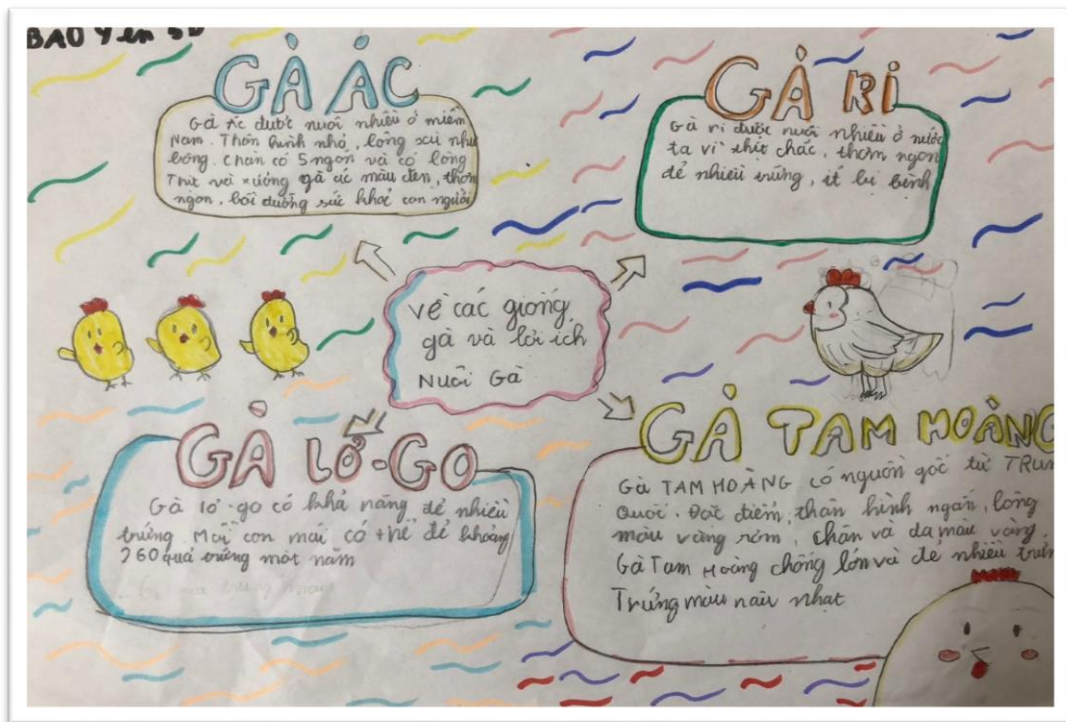 BAO Yên 5D
GÀ ÁC
Gà Ác được nuôi nhiều ở miền
Nam. Thân hình nhỏ, lông xù như
bông. Chân có 5 ngón và có lông
Thịt và xương gà ác màu đen, thơm
ngon, bồi dưỡng sức khoẻ con người
GÀ RI
Gà ri được nuôi nhiều ở nước
ta vì thịt chắc, thơm ngon
đẻ nhiều trứng, ít bị bệnh
Về các giống
gà và lợi ích
Nuôi Gà
GÀ LỞ-GO
Gà lơ-go có khả năng đẻ nhiều
trứng. Mỗi con mái có thể đẻ khoảng
260 quả trứng một năm
GÀ TAM HOÀNG
Gà TAM HOÀNG có nguồn gốc từ TRUN
Quốc. Đặc điểm, thân hình ngắn, lông
màu vàng rơm, chân và da màu vàng
Gà Tam Hoàng chóng lớn và đẻ nhiều trứn
Trứng màu nâu nhạt